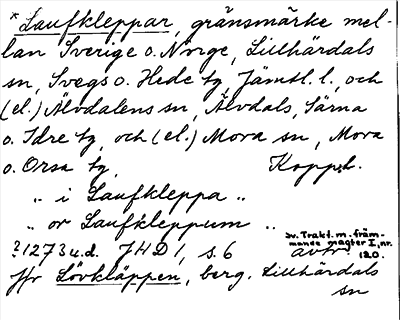 * Laufkleppar, gränsmärke mel-
lan Sverige o. Norge, Lillhärdals
sn, Svegs o. Hede tg, Jämtl. l., och
(el.) Älvdalens sn, Älvdals, Särna
o. Idre tg, och (el.) Mora sn, Mora
o. Orsa tg, Kopp.l.
„ i Laufkleppa „
„ or Laufkleppum „
? 1273 u.d. JHD 1, s. 6 avtr.
sv. Trakt. m. främ-
mande magter I, nr.
120.
Jfr Lövkläppen, berg. Lillhärdals
sn